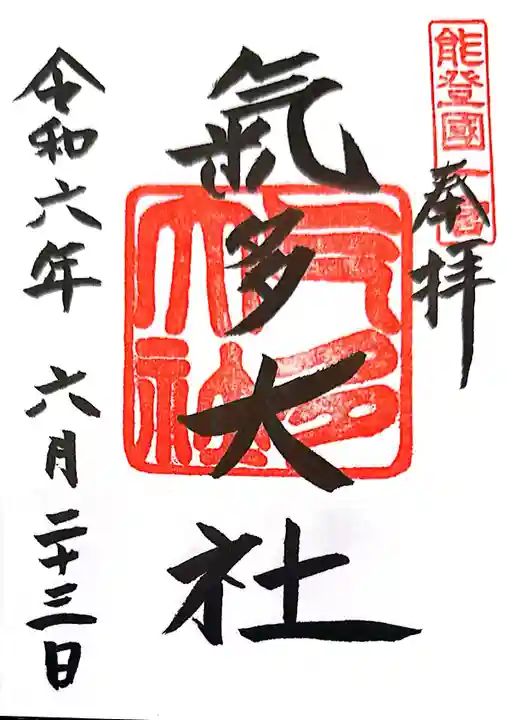 能登國一宮
奉拝
氣多大社
气多大社
令和六年 六月二十三日